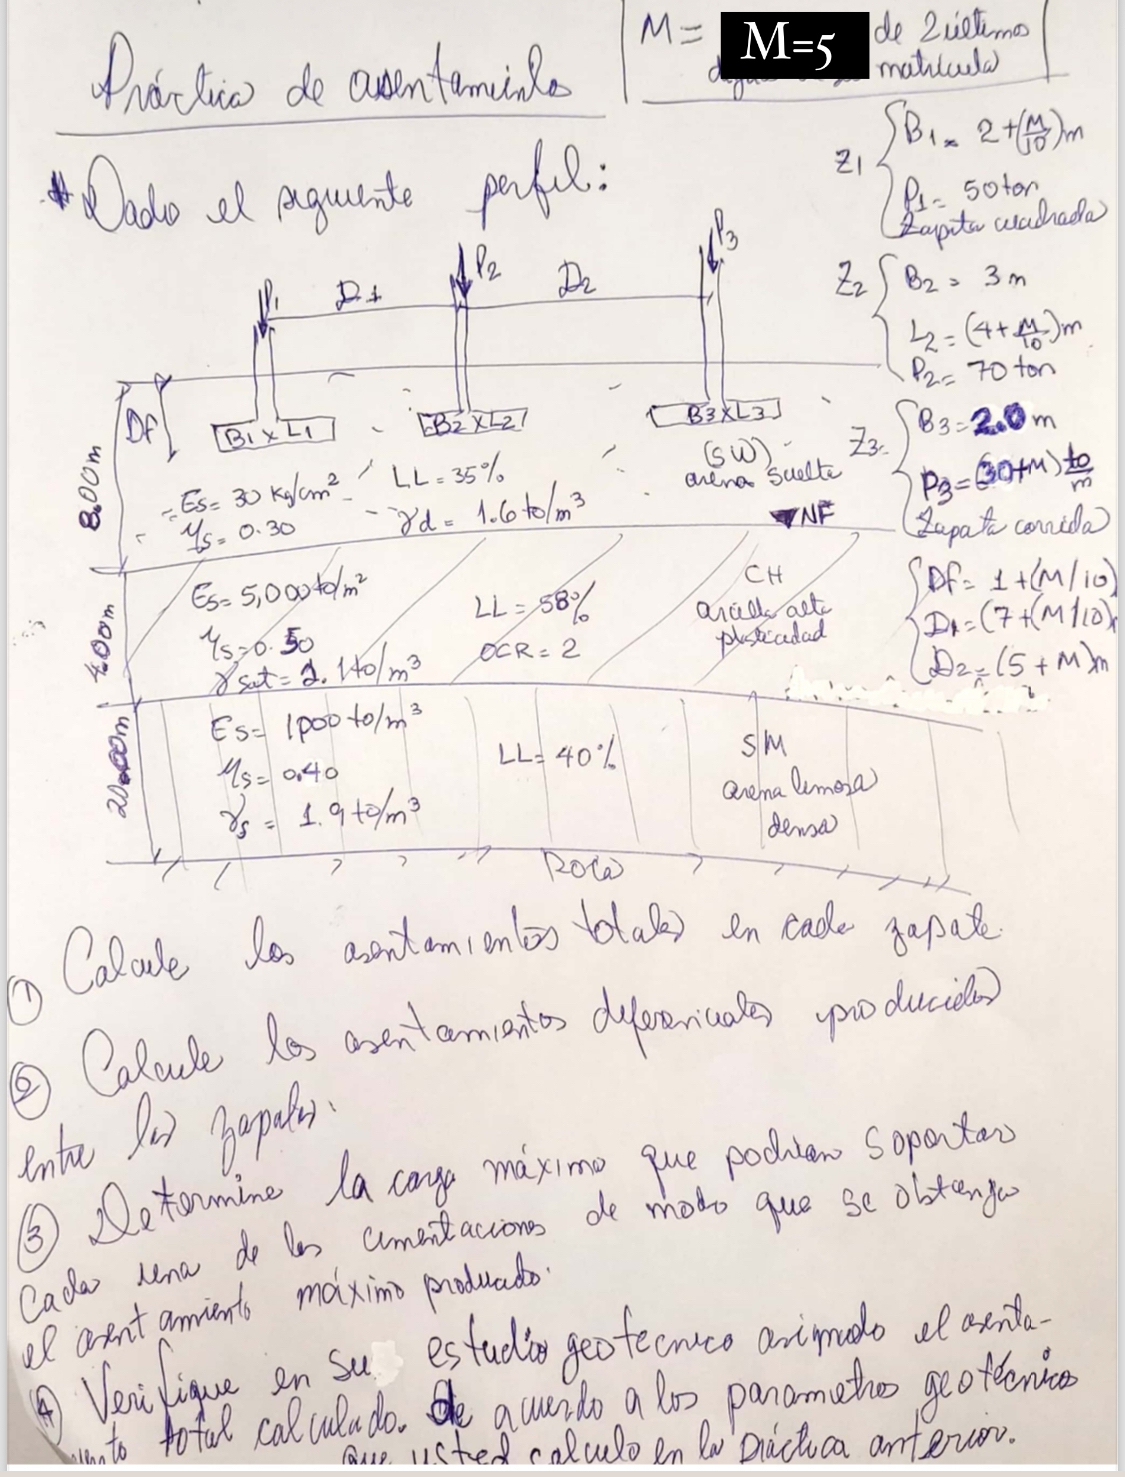 M= M=5 de 2 últimos
matrícula
Práctica de asentamiento
* Dado el siguiente perfil:
Z1 { B1 = 2+(M/10)m
P1 = 50 ton
Zapata cuadrada
Z2 { B2 = 3 m
L2 = (4+M/10)m
P2 = 70 ton
Z3 { B3 = 2.0 m
P3 = (30+M) to/m
Zapata corrida
{ Df = 1+(M/10)
D1 = (7+(M/10)
D2 = (5+M)m
P1 D1 P2 D2 P3
Df B1 x L1 B2 x L2 B3 x L3
8.00m
Es = 30 kg/cm² LL = 35% (SW) arena suelta
μs = 0.30 γd = 1.6 to/m³ NF
4.00m
Es = 5,000 to/m² LL = 58% CH
μs = 0.50 OCR = 2 arcilla alta plasticidad
γsat = 2.1 to/m³
20.00m
Es = 1000 to/m³ LL = 40% SM
μs = 0.40 arena limosa
γs = 1.9 to/m³ densa
Roca
① Calcule los asentamientos totales en cada zapata.
② Calcule los asentamientos diferenciales producidos
entre las zapatas.
③ Determine la carga máxima que podrían soportar
cada una de las cimentaciones de modo que se obtenga
el asentamiento máximo producido.
④ Verifique en su estudio geotecnico asignado el asenta-
miento total calculado. De acuerdo a los parametros geotécnicos
que usted calculo en la práctica anterior.